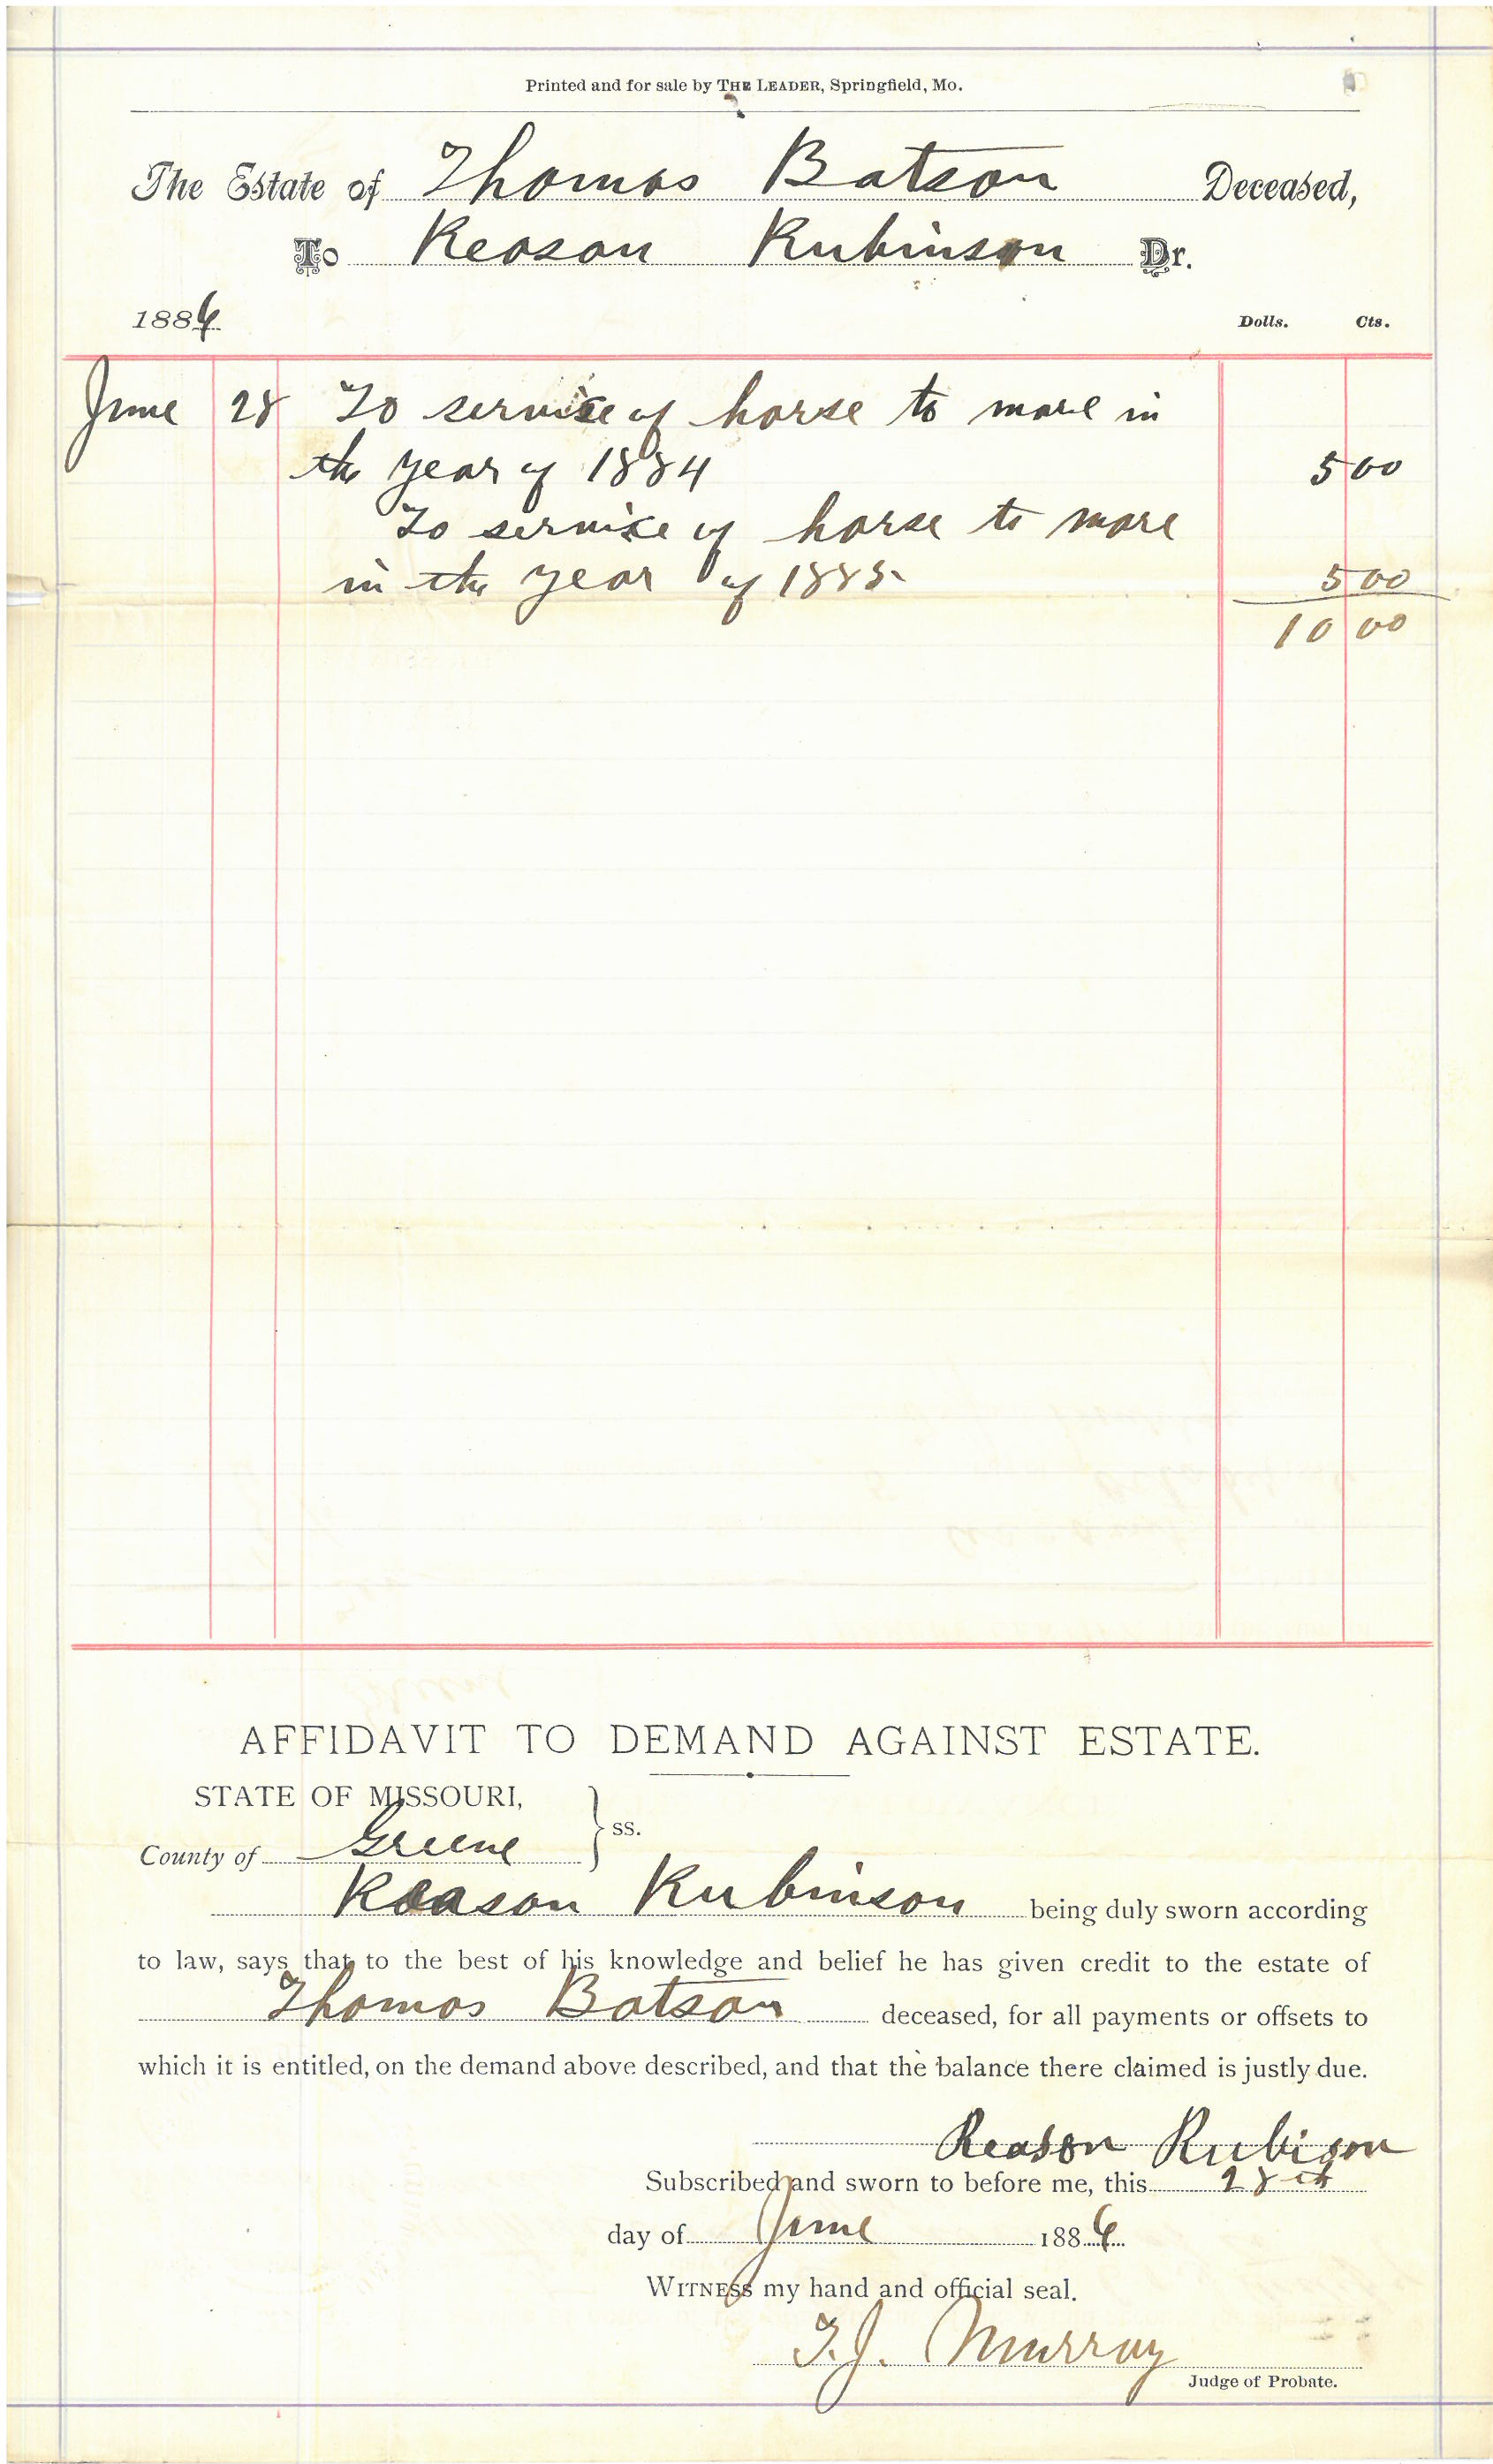 Printed and for sale by THE LEADER, Springfield, Mo.
The Estate of Thomas Batson Deceased,
To Reason Rubinson Dr.
1886 Dolls. Cts.
June 28 To service of horse to mare in
the year of 1884 5 00
To service of horse to mare
in the year of 1885 5 00
10 00
AFFIDAVIT TO DEMAND AGAINST ESTATE.
STATE OF MISSOURI,
County of Greene } ss.
Reason Rubinson being duly sworn according
to law, says that to the best of his knowledge and belief he has given credit to the estate of
Thomas Batson deceased, for all payments or offsets to
which it is entitled, on the demand above described, and that the balance there claimed is justly due.
Reason Rubison
Subscribed and sworn to before me, this 28th
day of June 1886
WITNESS my hand and official seal.
T.J. Murray
Judge of Probate.